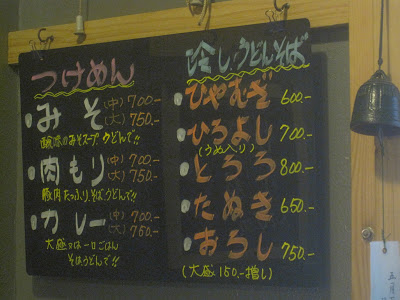 つけめん
みそ (中) 700.-
(大) 750.-
酸味のみそスープ うどんで!!
肉もり (中) 700.-
(大) 750.-
豚肉たっぷり、そば、うどんで!!
カレー (中) 700.-
(大) 750.-
大盛又は一口ごはん
そばうどんで!!
冷し.うどん.そば
ひやむぎ 600.-
ひろよし 700.-
(うめ入り)
とろろ 800.-
たぬき 650.-
おろし 750.-
(大盛 150.-増し)